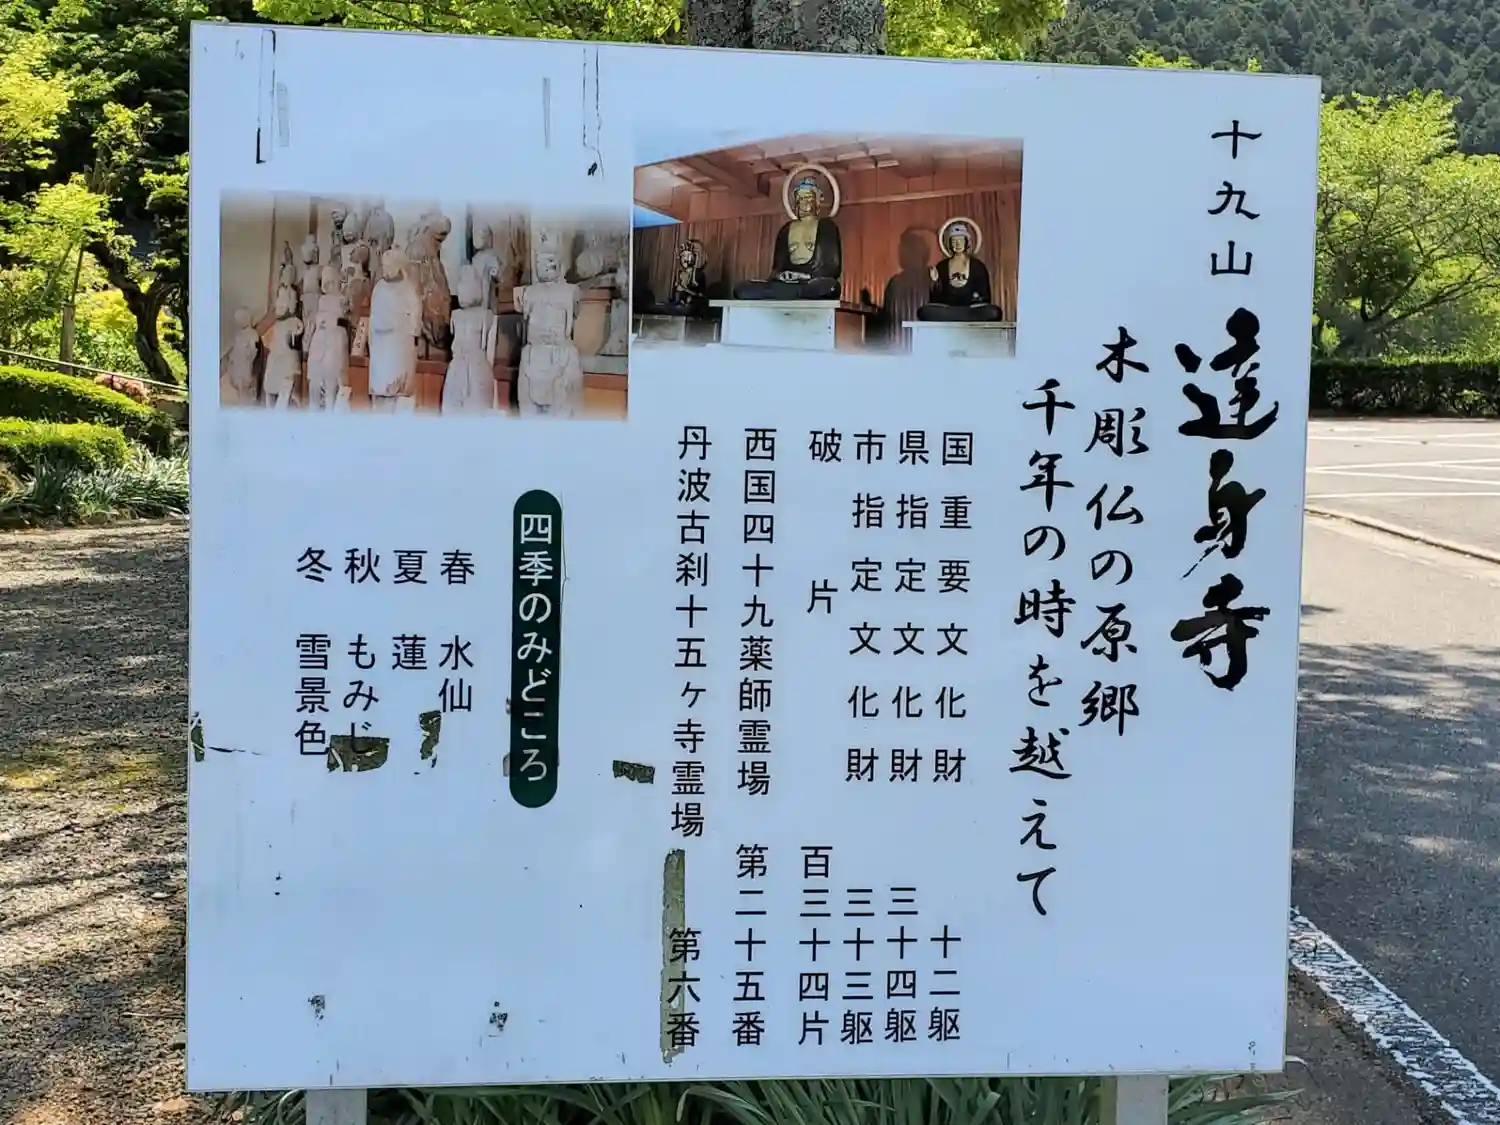 十九山
達身寺
木彫仏の原郷
千年の時を越えて
国重要文化財 十二躯
県指定文化財 三十四躯
市指定文化財 三十三躯
破片 百三十四片
西国四十九薬師霊場 第二十五番
丹波古刹十五ヶ寺霊場 第六番
四季のみどころ
春 水仙
夏 蓮
秋 もみじ
冬 雪景色